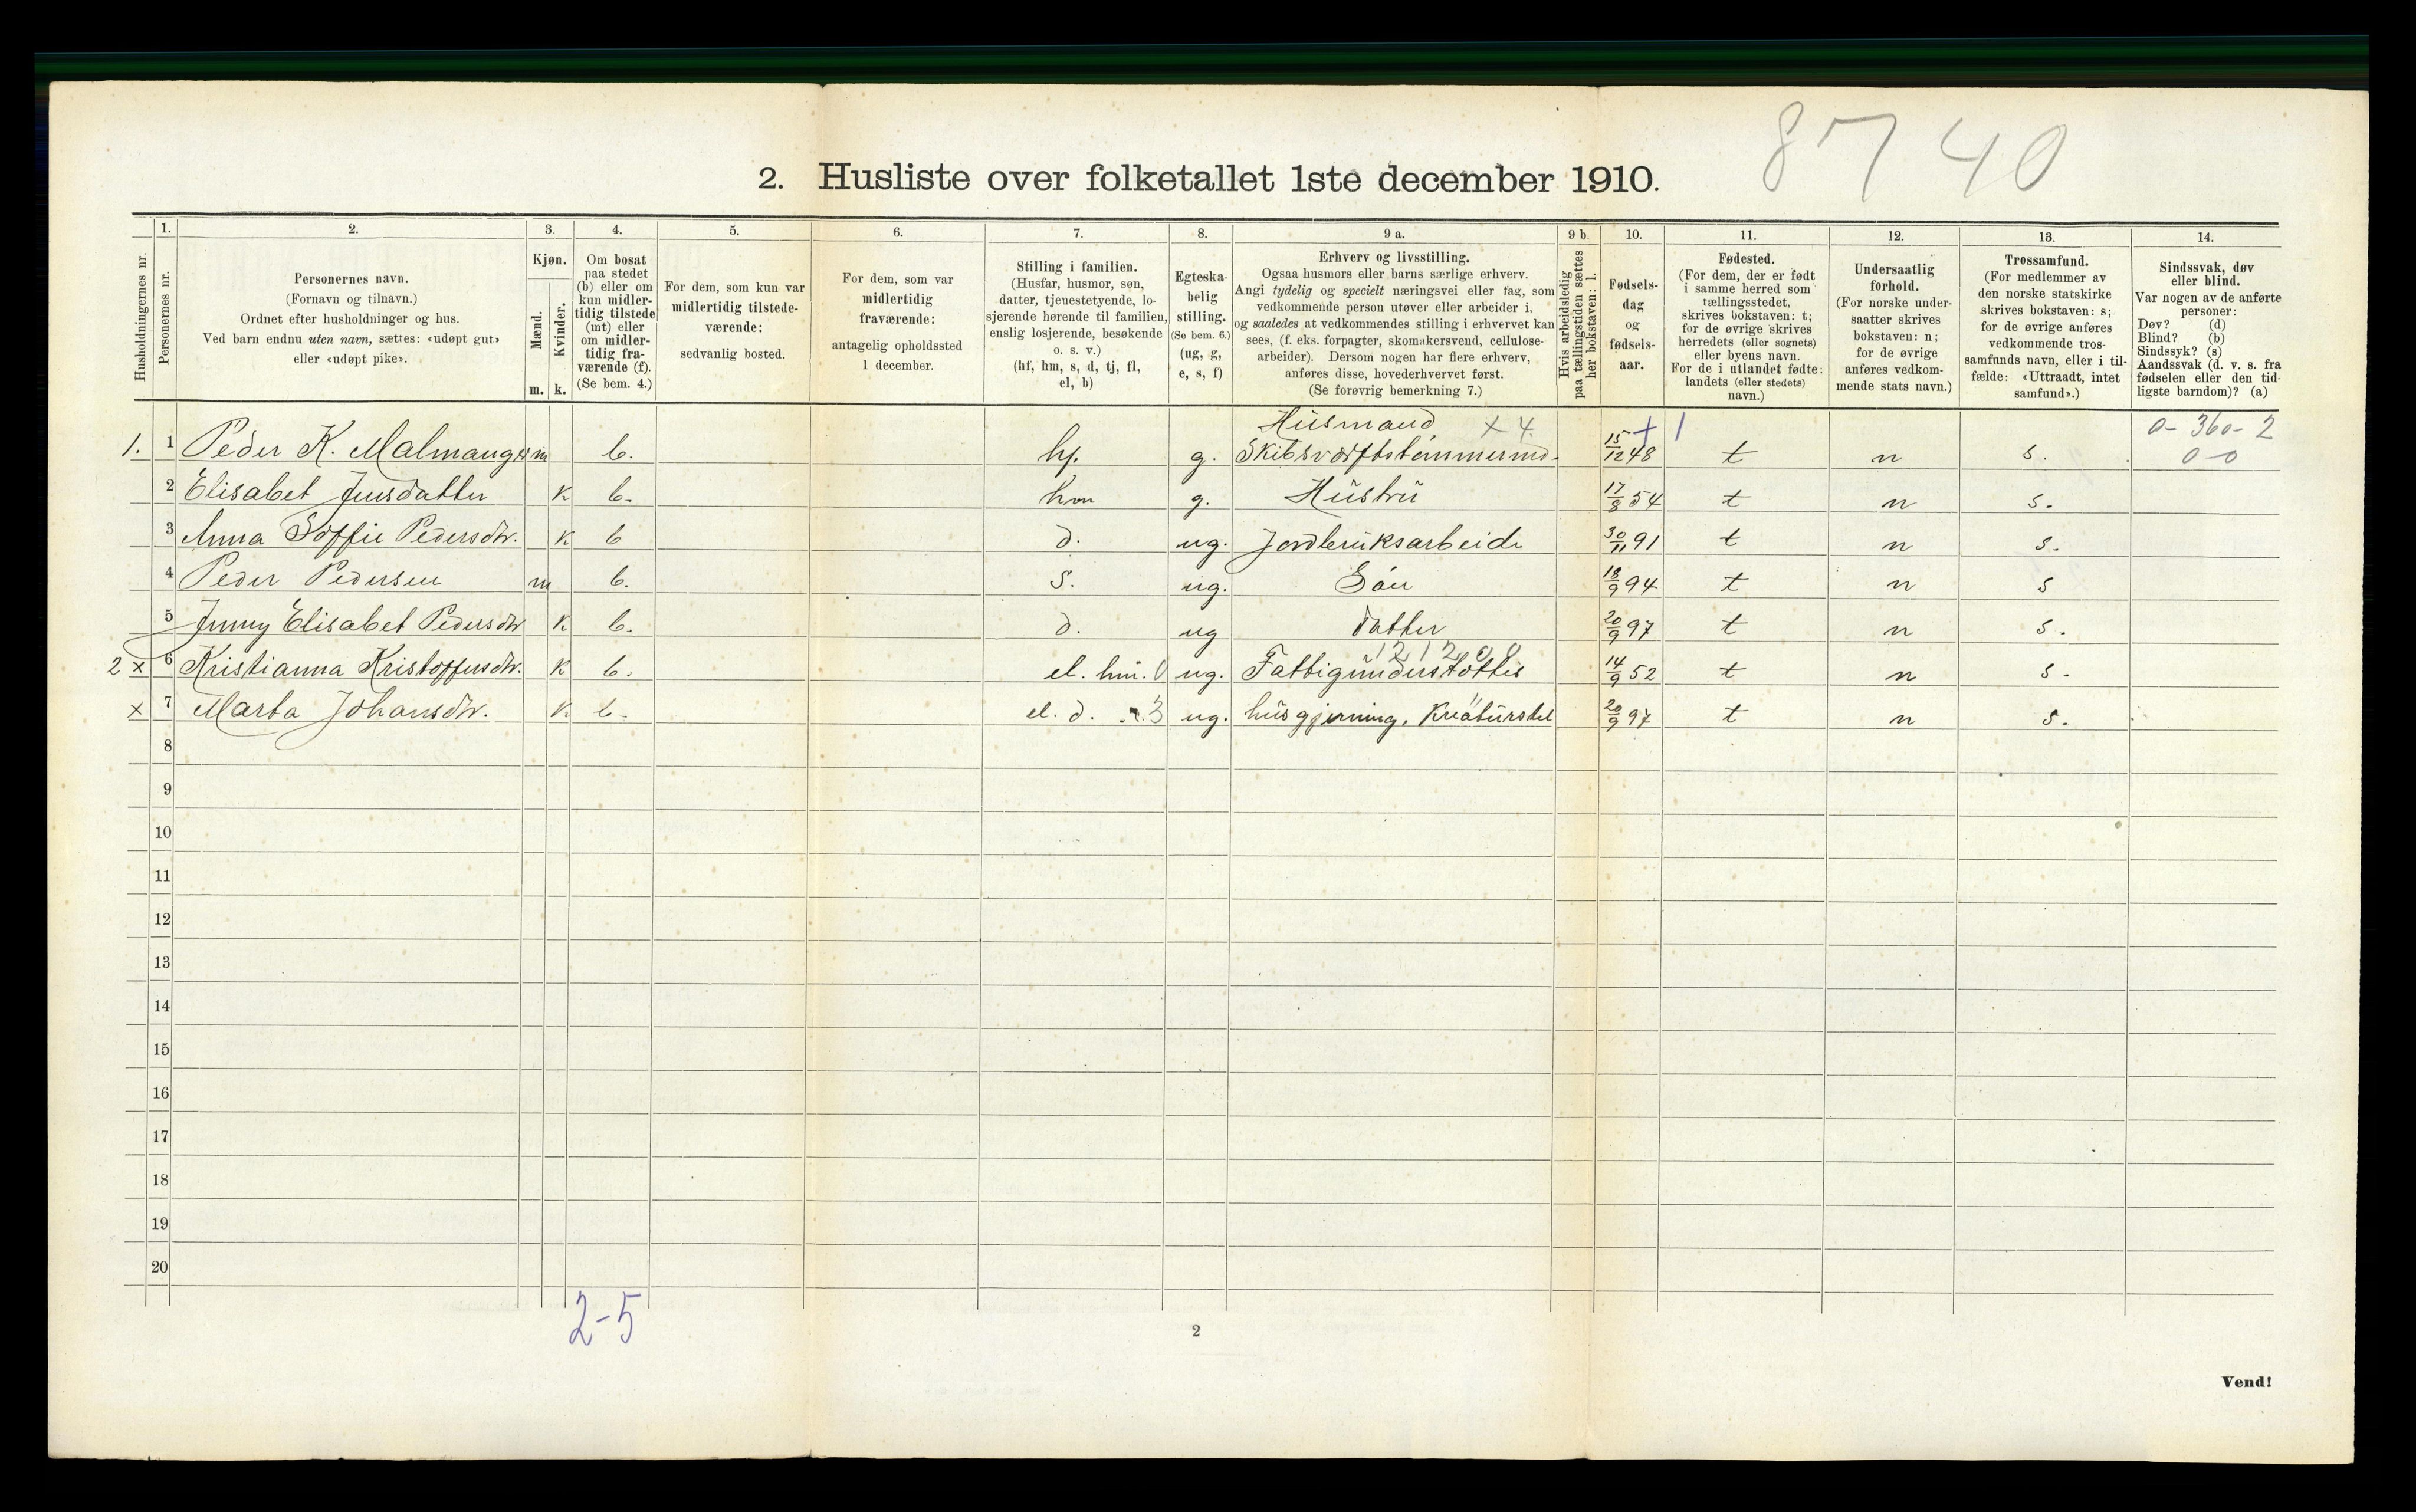 8740
2. Husliste over folketallet 1ste december 1910.
Husholdningernes nr.
1.
Personernes nr.
2.
Personernes navn.
(Fornavn og tilnavn.)
Ordnet efter husholdninger og hus.
Ved barn endnu uten navn, sættes: «udøpt gut»
eller «udøpt pike».
3.
Kjøn.
Mænd.
Kvinder.
m. k.
4.
Om bosat
paa stedet
(b) eller om
kun midler-
tidig tilstede
(mt) eller
om midler-
tidig fra-
værende (f).
(Se bem. 4.)
5.
For dem, som kun var
midlertidig tilstede-
værende:
sedvanlig bosted.
6.
For dem, som var
midlertidig
fraværende:
antagelig opholdssted
1 december.
7.
Stilling i familien.
(Husfar, husmor, søn,
datter, tjenestetyende, lo-
sjerende hørende til familien,
enslig losjerende, besøkende
o. s. v.)
(hf, hm, s, d, tj, fl,
el, b)
8.
Egteska-
belig
stilling.
(Se bem. 6.)
(ug, g,
e, s, f)
9 a.
Erhverv og livsstilling.
Ogsaa husmors eller barns særlige erhverv.
Angi tydelig og specielt næringsvei eller fag, som
vedkommende person utøver eller arbeider i,
og saaledes at vedkommendes stilling i erhvervet kan
sees, (f. eks. forpagter, skomakersvend, cellulose-
arbeider). Dersom nogen har flere erhverv,
anføres disse, hovederhvervet først.
(Se forøvrig bemerkning 7.)
9 b.
Hvis arbeidsledig
paa tællingstiden sættes
her bokstaven: l.
10.
Fødsels-
dag
og
fødsels-
aar.
11.
Fødested.
(For dem, der er født
i samme herred som
tællingsstedet,
skrives bokstaven: t;
for de øvrige skrives
herredets (eller sognets)
eller byens navn.
For de i utlandet fødte:
landets (eller stedets)
navn.)
12.
Undersaatlig
forhold.
(For norske under-
saatter skrives
bokstaven: n;
for de øvrige
anføres vedkom-
mende stats navn.)
13.
Trossamfund.
(For medlemmer av
den norske statskirke
skrives bokstaven: s;
for de øvrige anføres
vedkommende tros-
samfunds navn, eller i til-
fælde: «Uttraadt, intet
samfund».)
14.
Sindssvak, døv
eller blind.
Var nogen av de anførte
personer:
Døv? (d)
Blind? (b)
Sindssyk? (s)
Aandssvak (d. v. s. fra
fødselen eller den tid-
ligste barndom)? (a)
Husmand x 4. + 1 0-360-2
1. 1 Peder K. Malmanger m b. hf. g. Skibsværftstømmermd. 15/12 48 t n s. 0-0
2 Elisabet Jensdatter k b. hm g. Hustru 17/8 54 t n s.
3 Anna Soffie Pedersdtr. k b d. ug. Jordbruksarbeide 30/11 91 t n s.
4 Peder Pedersen m b. s. ug. Søn 18/9 94 t n s
5 Jenny Elisabet Pedersdtr k b. d. ug Datter 20/9 97 t n s.
2 x 6 Kristianna Kristoffersdtr. k b. el. hm. 0 ug. Fattigunderstøttes 14/9 52 t n s.
x 7 Marta Johansdtr. k b. el. d. 3 ug. husgjerning, Kreaturstel 20/9 97 t n s.
8
9
10
11
12
13
14
15
16
17
18
19
20
2-5
2
Vend!